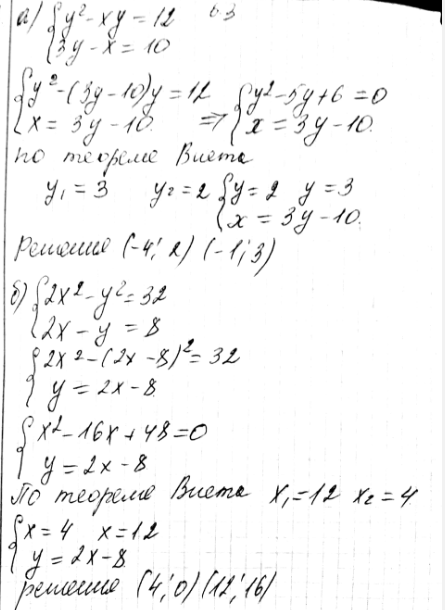 а) {y² - xy = 12   63
{3y - x = 10
{y² - (3y - 10)y = 12   {y² - 5y + 6 = 0
{x = 3y - 10.   ⇒ {x = 3y - 10.
по теореме Виета
y₁ = 3   y₂ = 2   {y = 2   y = 3
{x = 3y - 10.
решение (-4; 2) (-1; 3)
б) {2x² - y² = 32
{2x - y = 8
{2x² - (2x - 8)² = 32
{y = 2x - 8
{x² - 16x + 48 = 0
{y = 2x - 8
По теореме Виета x₁ = 12 x₂ = 4
{x = 4   x = 12
{y = 2x - 8
решение (4; 0) (12; 16)